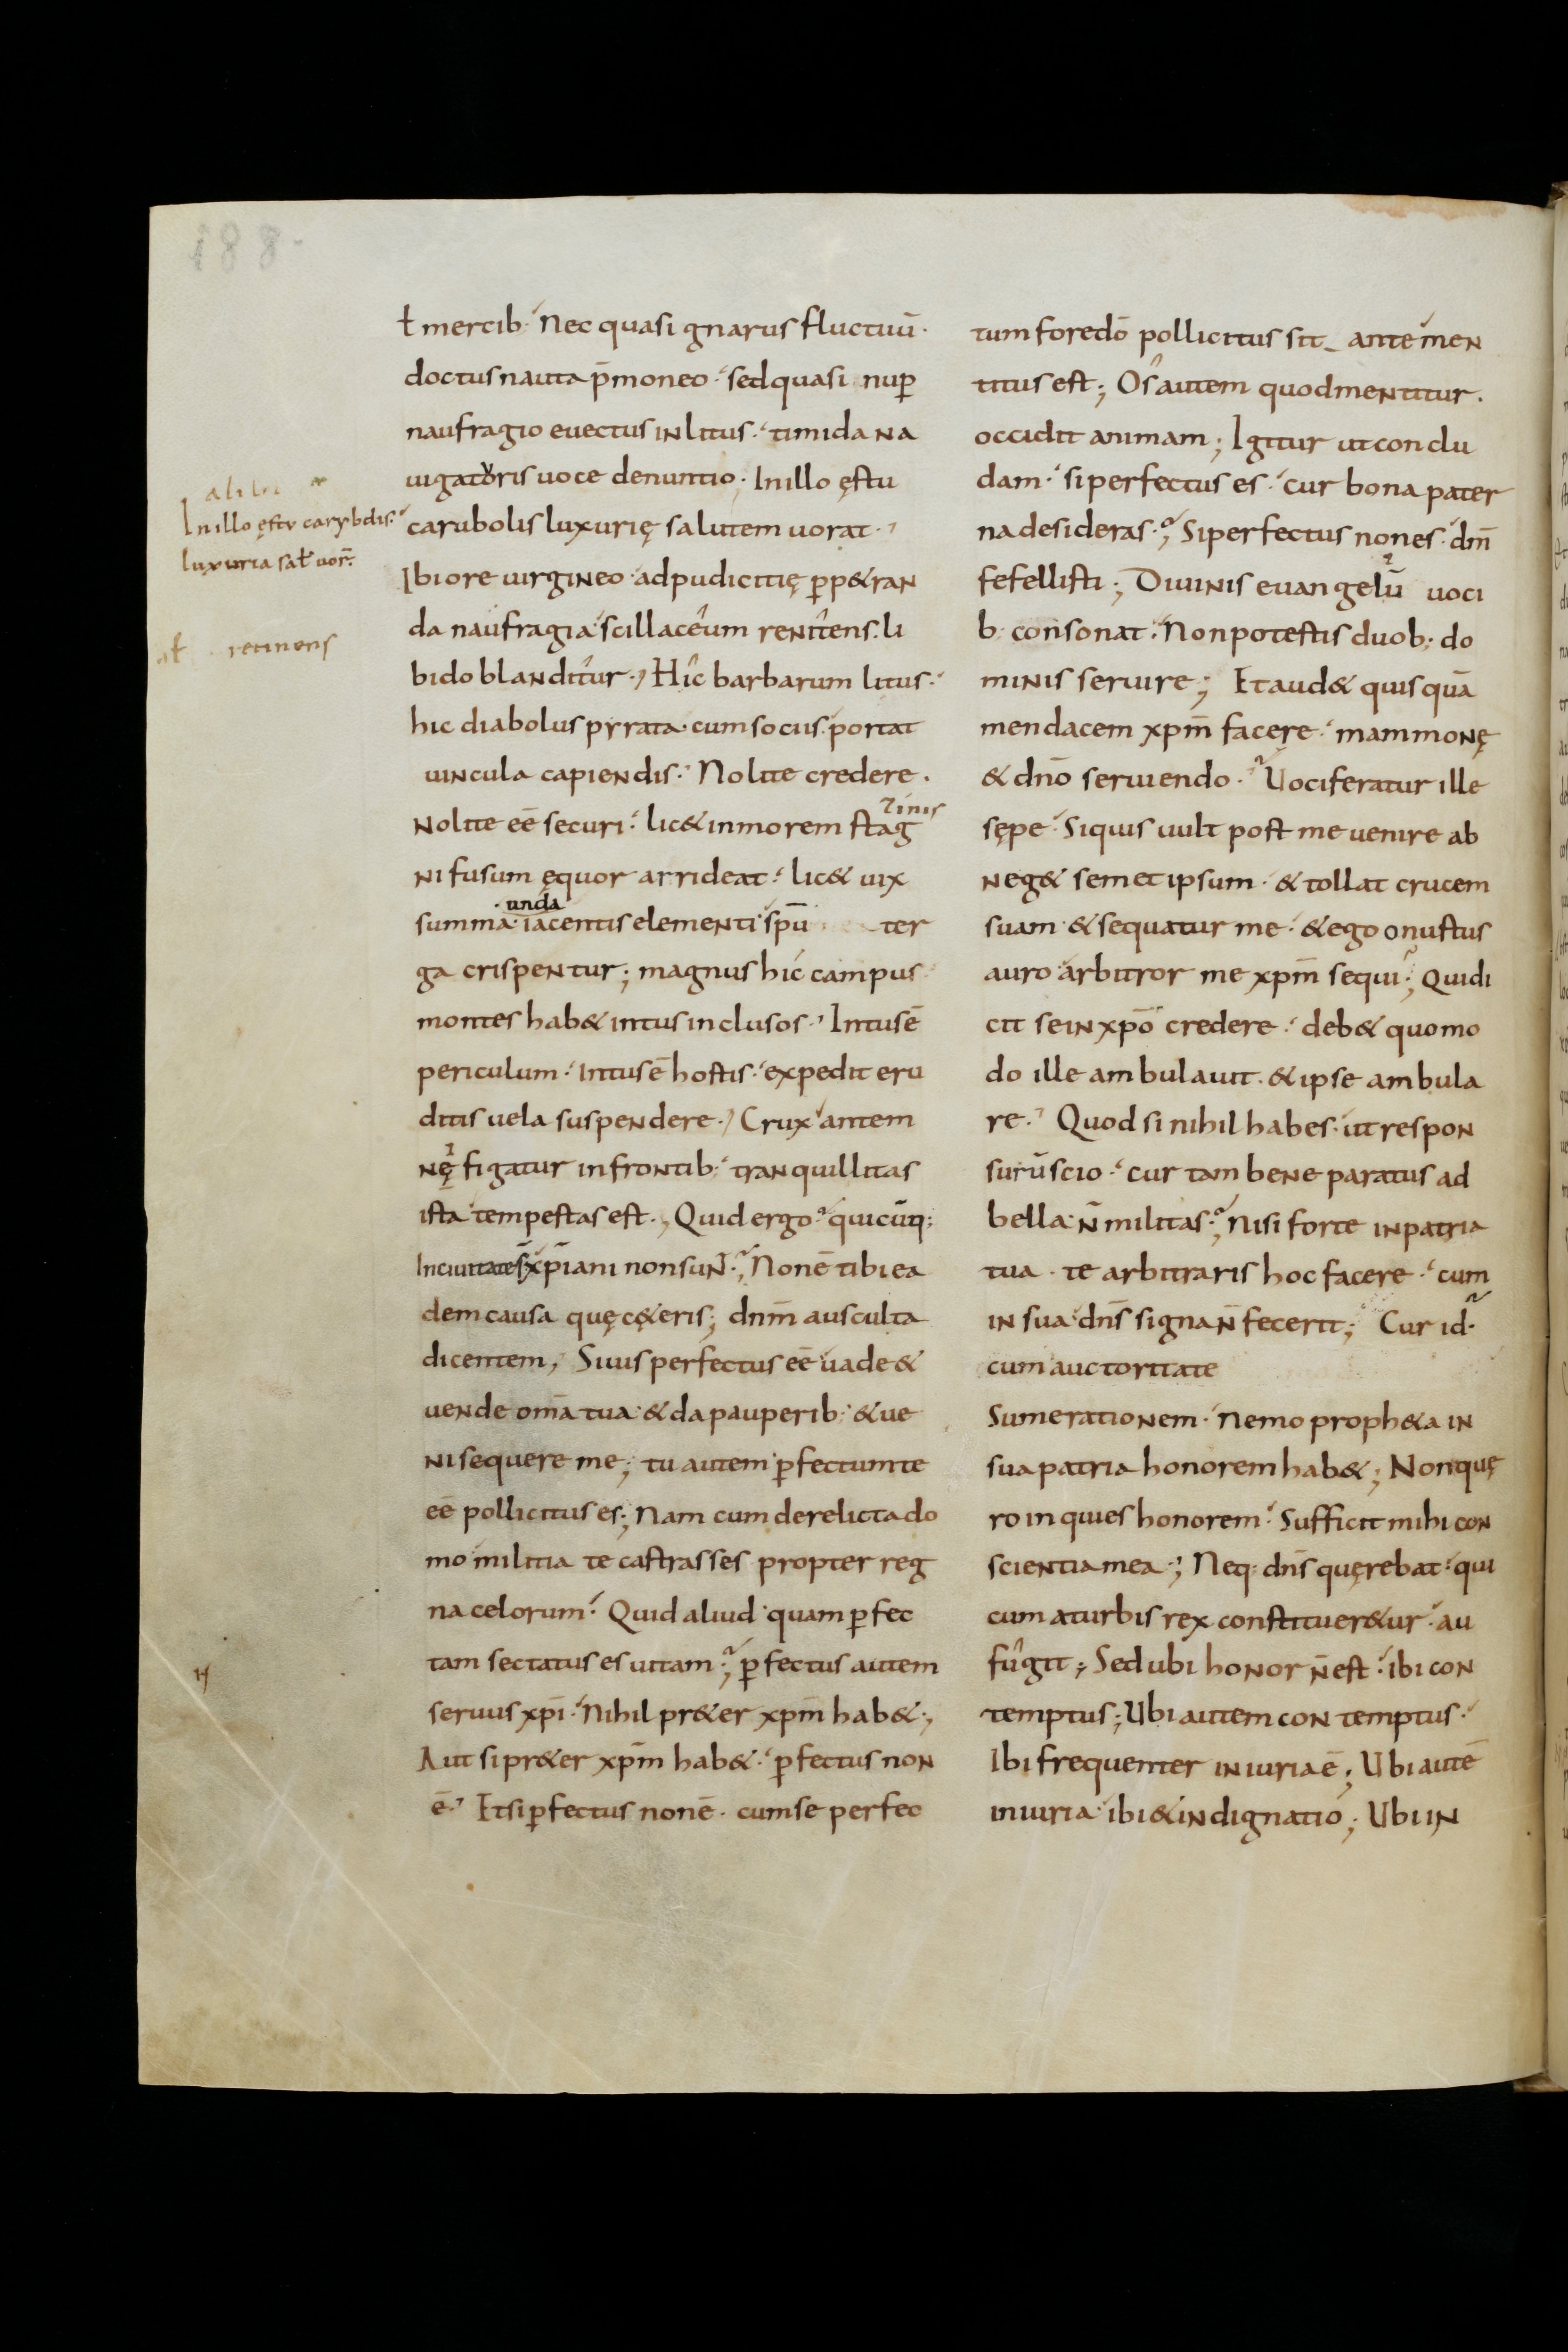 ł mercib: Nec quasi gnarus fluctuū·
doctus nauta p̄moneo· sed quasi nup̲
naufragio euectus in litus· timida na
uigatoris uoce denuntio; In illo ęstu
carubolis luxurię salutem uorat·
Ibi ore uirgineo ad pudicitię p̲p&ran
da naufragia scillaceum renitens· li
bido blanditur· Hic barbarum litus·
hic diabolus pyrata· cum sociis portat
uincula capiendis· Nolite credere·
Nolite eē securi· lic& in morem stag
ni fusum ęquor arrideat· lic& uix
unda
summa· iacentis elementi spū ter
ga crispentur; magnus hic campus
montes hab& intus inclusos· Intus ē
periculum· Intus ē hostis· expedit eru
ditis uela suspendere· Crux antem
nę figatur in frontib: tranquillitas
ista tempestas est·, Quid ergo· quicūq;
In ciuitate s̄ xp̄iani non sun̄·; Non ē tibi ea
dem causa quę c&eris; dnm̄ ausculta
dicentem, Si uis perfectus eē uade &
uende om̄a tua· & da pauperib: & ue
ni sequere me; tu autem p̲fectum te
eē pollicitus es; Nam cum derelicta do
mo militia te castrasses propter reg
na celorum· Quid aliud quam p̲fec
tam sectatus es uitam·; p̲fectus autem
seruus xp̄i· Nihil pr&er xpm̄ hab&·,
Aut si pr&er xpm̄ hab&· p̲fectus non
ē· Et si p̲fectus non ē· cum se perfec
In illo ęstv carybdis·
luxuria sał uor̄·
retinens
tum fore dō pollicitus sit_ ante men
titus est; Os autem quod mentitur·
occidit animam; Igitur ut conclu
dam· si perfectus es· cur bona pater
na desideras·; Si perfectus non es· dm̄
fefellisti; Diuinis euangelii ū uoci
b: consonat· Non potestis duob: do
minis seruire; Et aud& quisquā
mendacem xpm̄ facere· mammonę
& dn̄o seruiendo· Uociferatur ille
sępe· Si quis uult post me uenire ab
neg& semet ipsum· & tollat crucem
suam· & sequatur me· & ego onustus
auro arbitror me xpm̄ sequi·; Qui di
cit se in xp̄o credere· deb& quomo
do ille ambulauit· & ipse ambula
re· Quod si nihil habes· ut respon
surū scio· cur tam bene paratus ad
bella· n̄ militas·; Nisi forte in patria
tua· te arbitraris hoc facere· cum
in sua· dn̄s signa n̄ fecerit; Cur id·
cum auctoritate
Sume rationem· Nemo proph&a in
sua patria honorem hab&; Non quę
ro inquies honorem· Sufficit mihi con
scientia mea·; Neq: dn̄s quęrebat· qui
cum a turbis rex constituer&ur· au
fugit; Sed ubi honor n̄ est· ibi con
temptus; Ubi autem contemptus·
Ibi frequenter iniuria ē; Ubi autē
iniuria· ibi & indignatio; Ubi in